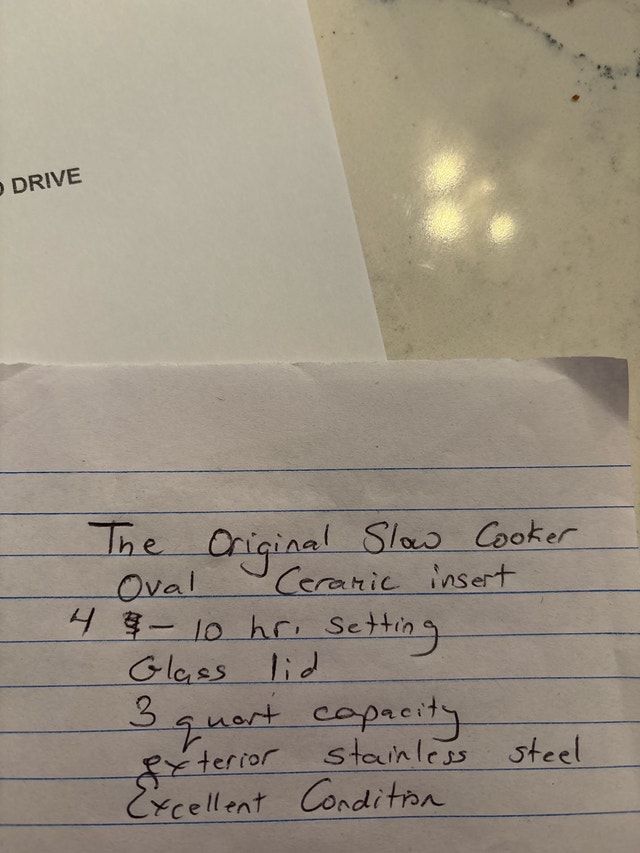 DRIVE
The Original Slow Cooker
Oval Ceramic insert
4 - 10 hr. setting
Glass lid
3 quart capacity
exterior stainless steel
Excellent Condition